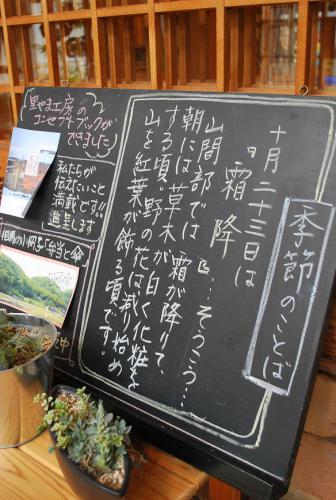 季節のことば
十月二十三日は
『霜降』…そうこう…
山間部では、霜が降りて
朝には草木が白く化粧を
する頃。野の花は減り始め
山を紅葉が飾る頃です。
里やま工房の
コンセプトブックが
できました
私たちが
伝えたいこと
満載です!!
進呈します
中